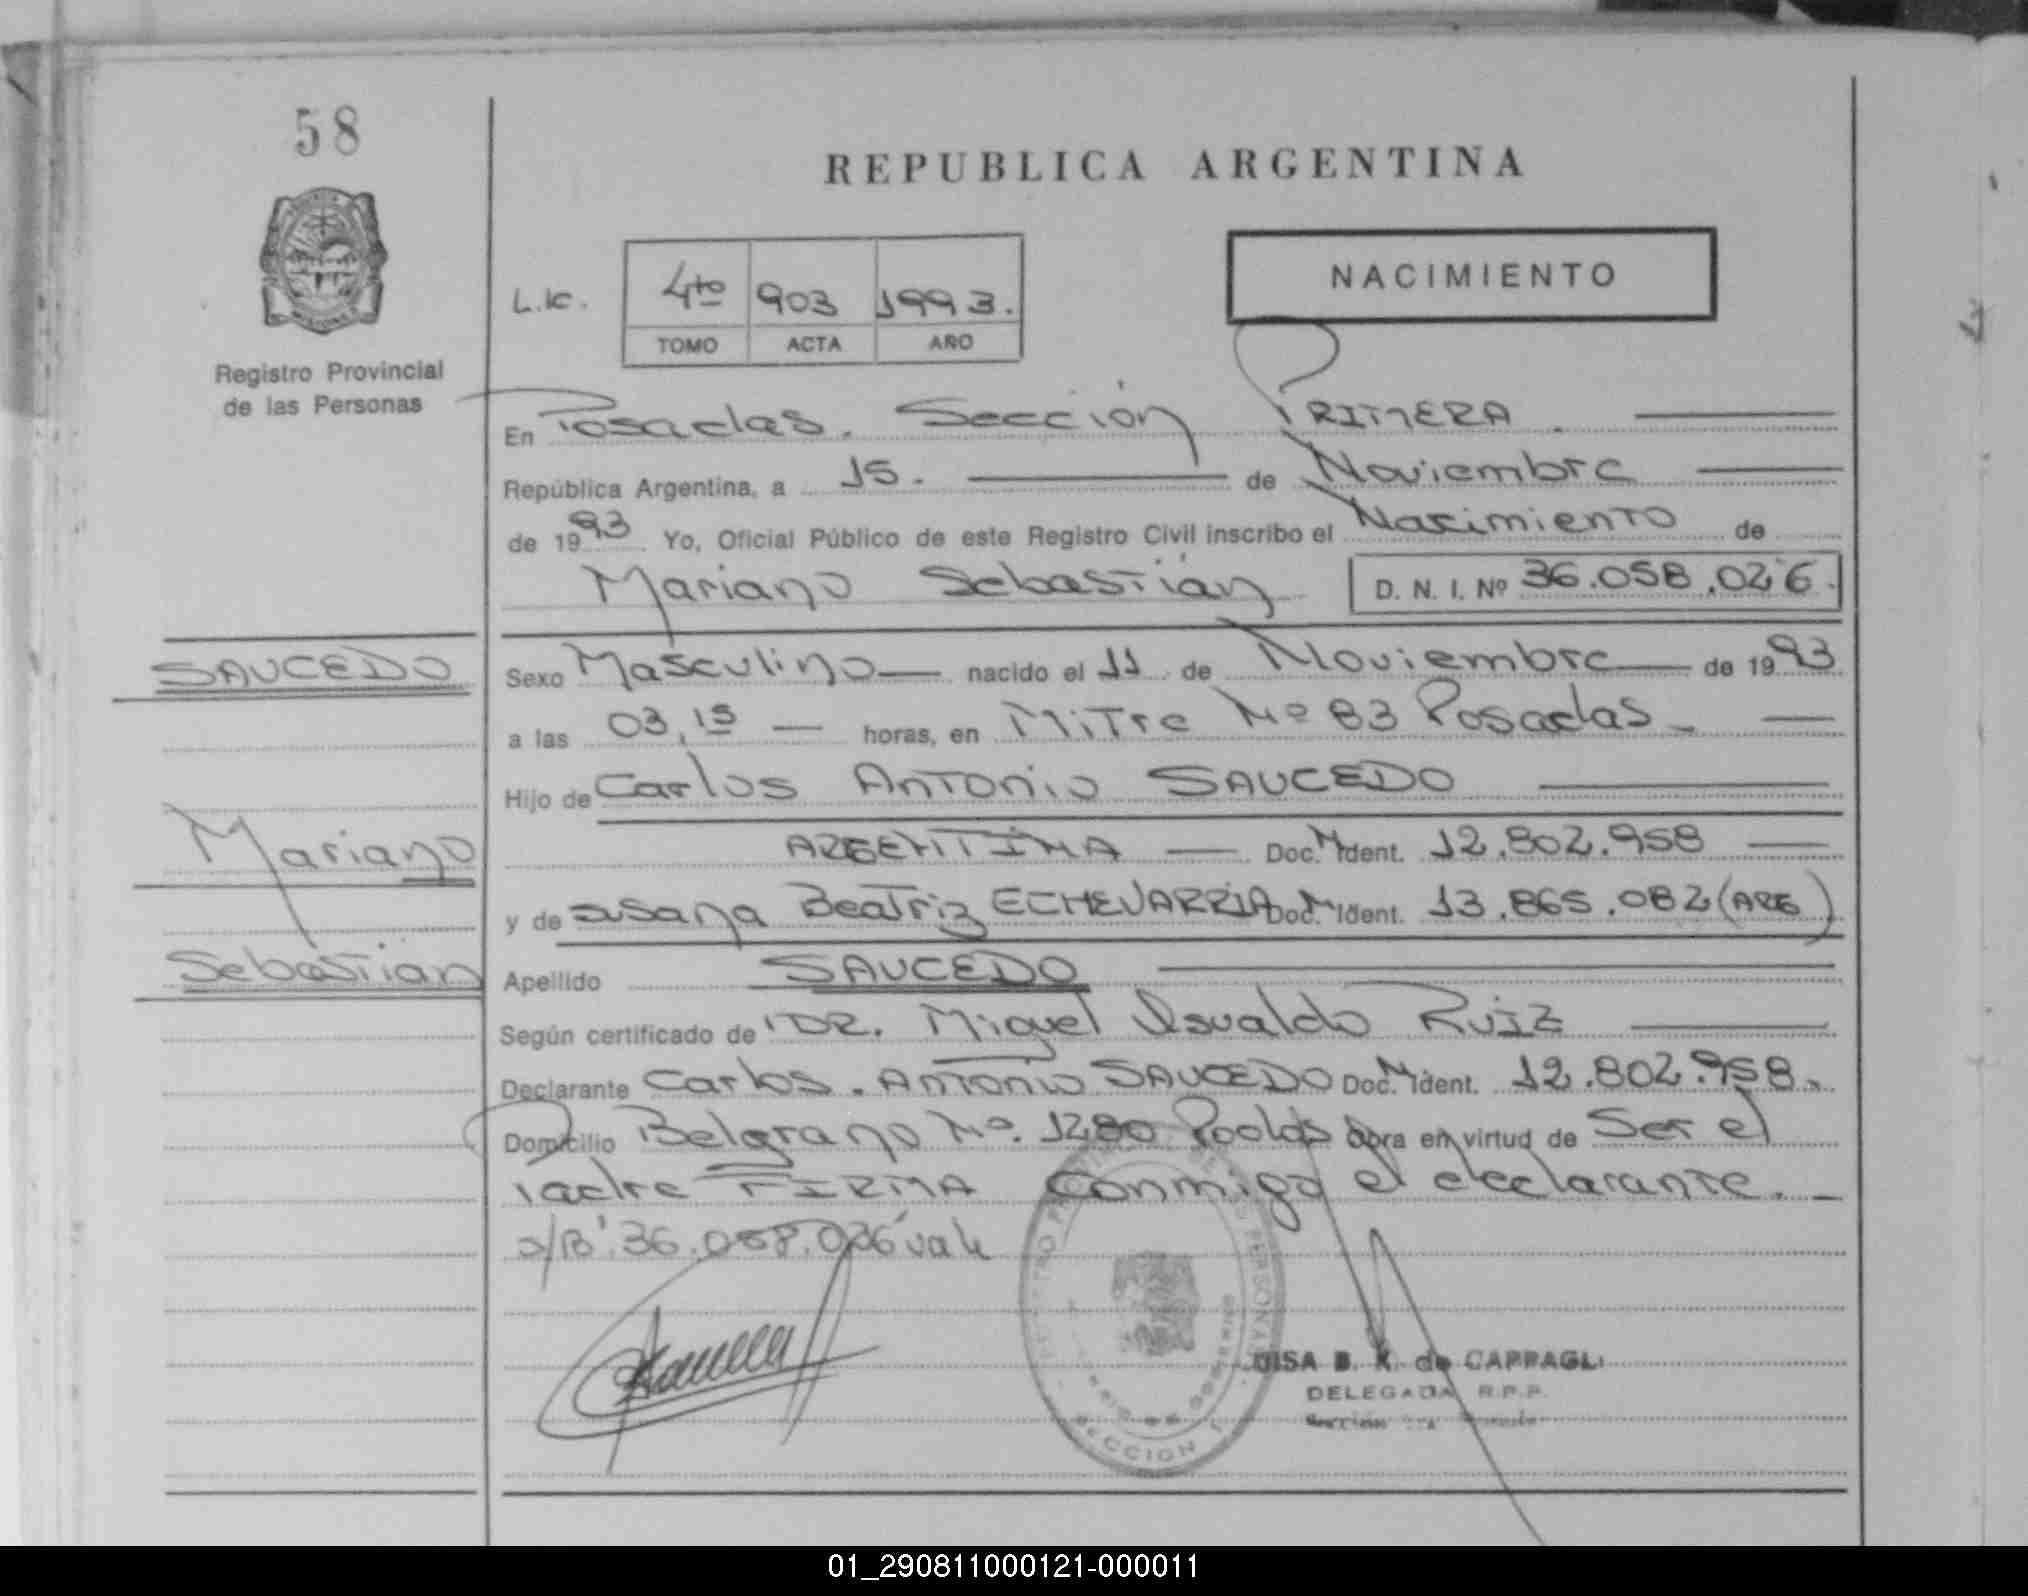 58
REPUBLICA ARGENTINA
Registro Provincial
de las Personas
NACIMIENTO
L.K. 4to 903 1993.
TOMO ACTA AÑO
En Posadas. Sección PRIMERA.
República Argentina, a 15. de Noviembre
de 1993 Yo, Oficial Público de este Registro Civil inscribo el Nacimiento de
Mariano Sebastián D. N. I. Nº 36.058.026.
SAUCEDO
Mariano
Sebastian
Sexo Masculino nacido el 11 de Noviembre de 1993
a las 03,15 horas, en Mitre Nº 83 Posadas
Hijo de Carlos Antonio SAUCEDO
ARGENTINA Doc. N Ident. 12.802.958
y de Susana Beatriz ECHEVARRIA Doc. N Ident. 13.865.082 (ARG)
Apellido SAUCEDO
Según certificado de DR. Miguel Osvaldo Ruiz
Declarante Carlos. Antonio SAUCEDO Doc. N Ident. 12.802.958.
Domicilio Belgrano Nº. 1280 Posdas obra en virtud de Ser el
Padre FIRMA conmigo el declarante.
s/B "36.058.026" vale
SECCION 1
B. K. de CAPPAGLI
DELEGADA R.P.P.
01_290811000121-000011